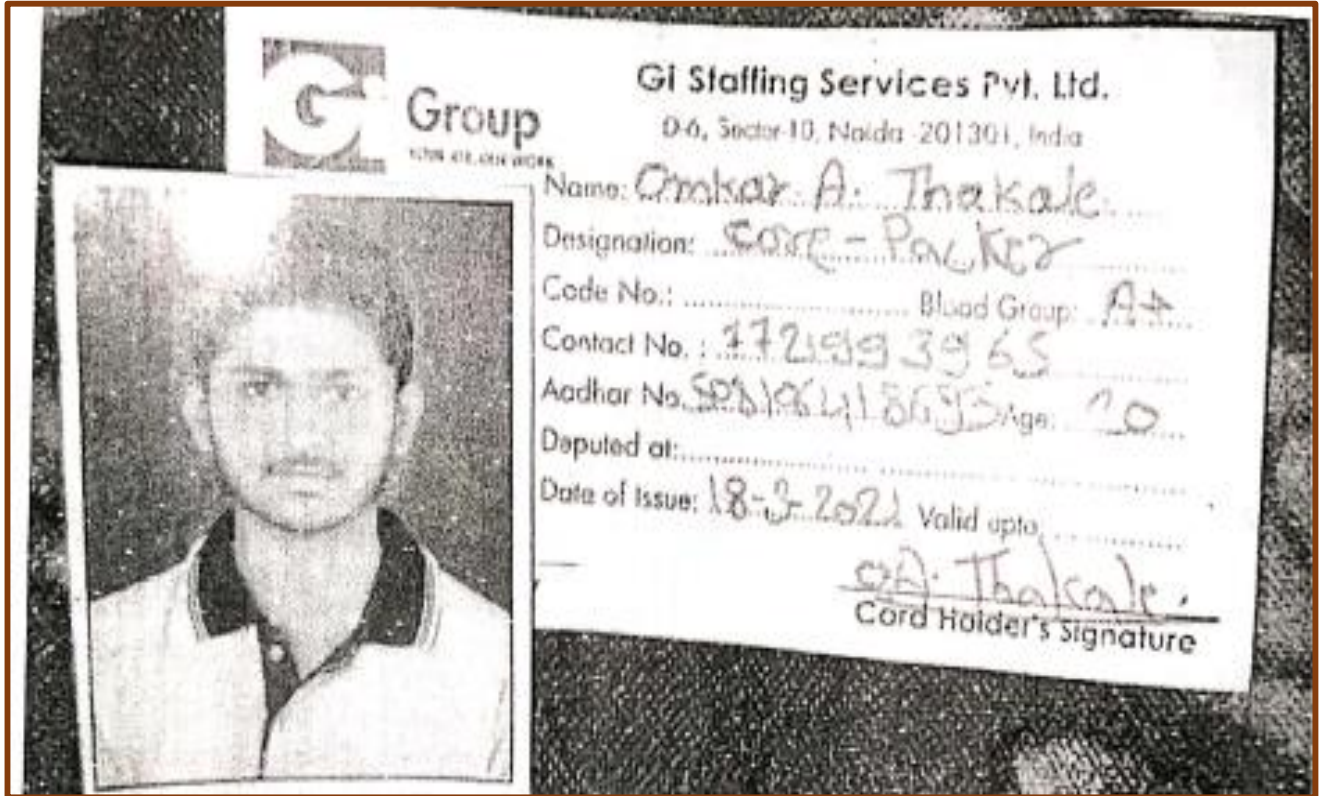 Gi Group
Gi Staffing Services Pvt. Ltd.
D-6, Sector-10, Noida -201301, India
Name: Omkar A. Thakale.
Designation: Core - Packer
Code No.: Blood Group: A+
Contact No. :
Aadhar No. Age:
Deputed at:
Date of Issue: 18-3-2021 Valid upto
OA. Thakale.
Card Holder's Signature